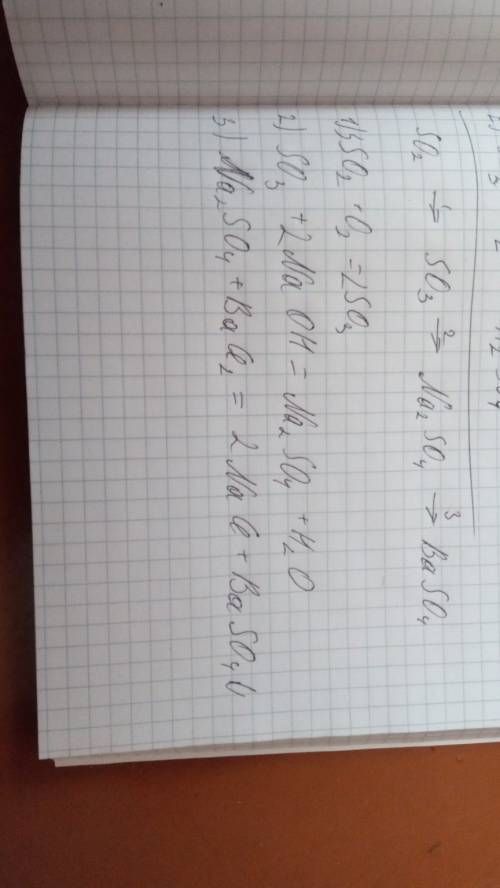 SO₂ →¹ SO₃ →² Na₂SO₄ →³ BaSO₄
1) SO₂ + O₂ = 2SO₃
2) SO₃ + 2NaOH = Na₂SO₄ + H₂O
3) Na₂SO₄ + BaCl₂ = 2NaCl + BaSO₄↓